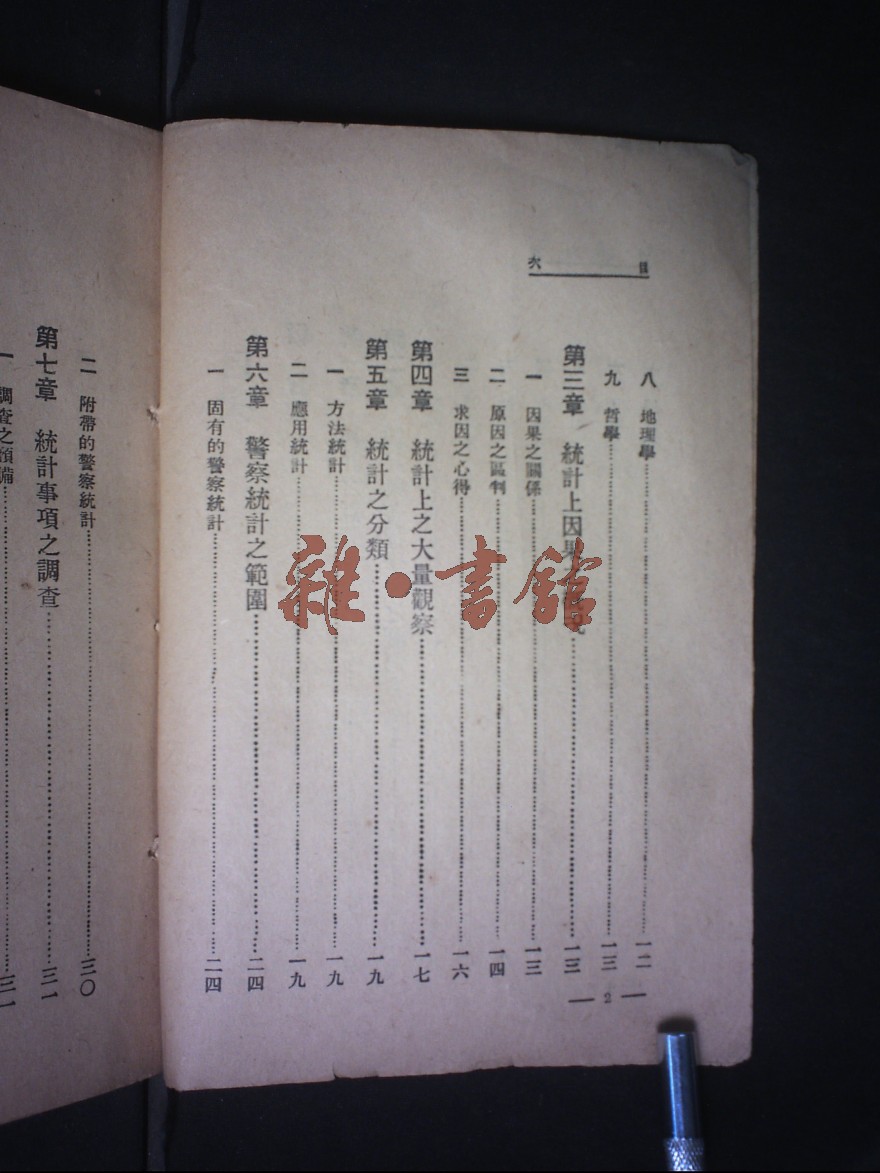 目次
八 地理學……一二
九 哲學……一三
第三章 統計上因果……一三
一 因果之關係……一三
二 原因之區判……一四
三 求因之心得……一六
第四章 統計上之大量觀察……一七
第五章 統計之分類……一九
一 方法統計……一九
二 應用統計……一九
第六章 警察統計之範圍……二四
一 固有的警察統計……二四
— 2 —
二 附帶的警察統計……三〇
第七章 統計事項之調查……三一
一 調查之預備……三一
雜·書館